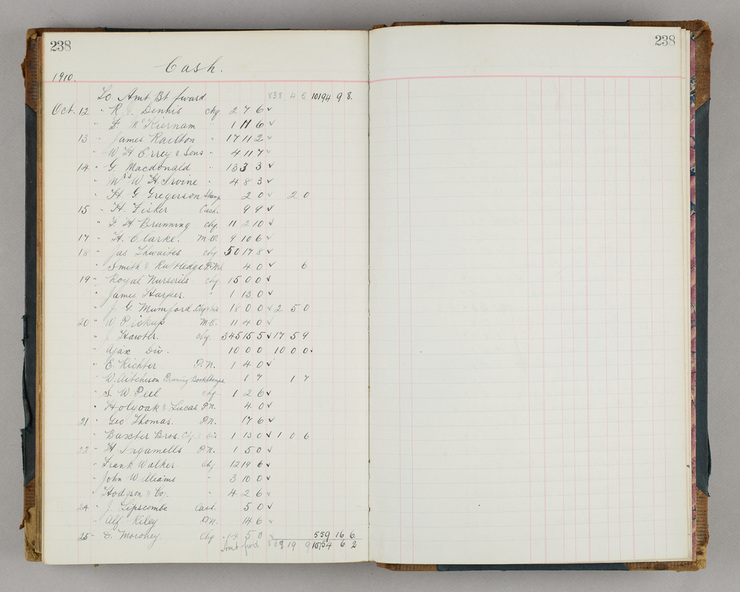 238
238
Cash.
1910
To Amt Bt fward. 1019 4 9 8.
Oct. 12 - R. Dennis chq 2 7 6
" 1 11 6
13 - James Railton - 17 11 2
- W. H. & Sons - 4 11 7
14 - G Macdonald - 13 3 3
- Mrs W H Irvine - 4 8 3
- H G Gregerson 2 0 2 0
15 - H. Fisher Cash. 9 9
- H Brunning chq 11 2 10
17 - H. Clarke. M.O. 9 10 6
18 - Jas Thwaites chq 50 17 8
- Smith & P.N. 4 0 6
19 - Royal chq 15 0 0
- James Harper. 1 13 0
- J. G. Mumford 18 0 0 2 5 0
20 - W Pickup M.O. 11 4 0
- J Hawtin. chq. 345 15 5 17 5 9
- Ajax Div. 10 0 0 10 0 0
- E. Richter P.N. 1 4 0
- Aitcheson 1 9 1 9
- S. W Peel chq 1 2 6
- Holyoak & Lucas P.N. 4 0
21 - Geo Thomas. P.N. 17 6
- Baxter Bros. 1 13 0 1 0 6
22 - H Ingamells P.N. 1 5 0
- Frank Walker. chq 12 19 6
- John Williams - 3 10 0
- Hodgson & Co. - 4 2 6
24 - J. Lipscombe Cash. 5 0
- Alf Riley P.N. 14 6
25 - Moroney. chq 5 0 559 16 6
Amt fwd 6 2